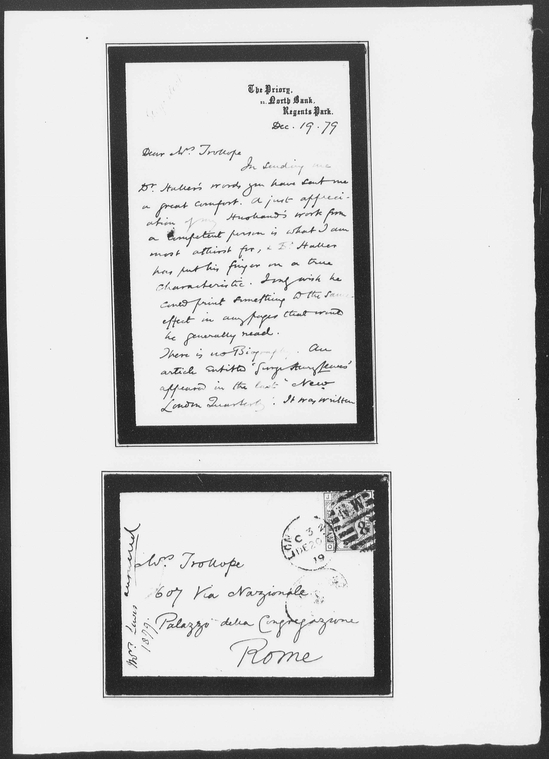 The Priory,
21. North Bank.
Regents Park.
Dec. 19. 79
Dear Mrs Trollope
In sending me
Dr. Haller's words you have sent me
a great comfort. A just appreci-
ation of my Husband's work from
a competent person is what I am
most athirst for, & Dr Haller
has put his finger on a true
characteristic. I only wish he
could print something to the same
effect in any pages that would
be generally read.
There is no Biography. An
article entitled "George Henry Lewes"
appeared in the last "New
London Quarterly". It was written
LONDON N.W
C 3
DE 20
79
N.W
8
Mrs Trollope
607 Via Nazionale
Palazzo della Congregazione
Rome
Mrs Lewes answered
1879.